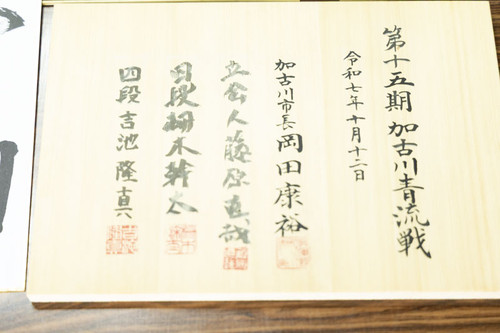 第十五期 加古川青流戦
令和七年十月十二日
加古川市長 岡田康裕
立会人 藤原直哉
四段 柵木幹太
四段 吉池隆真